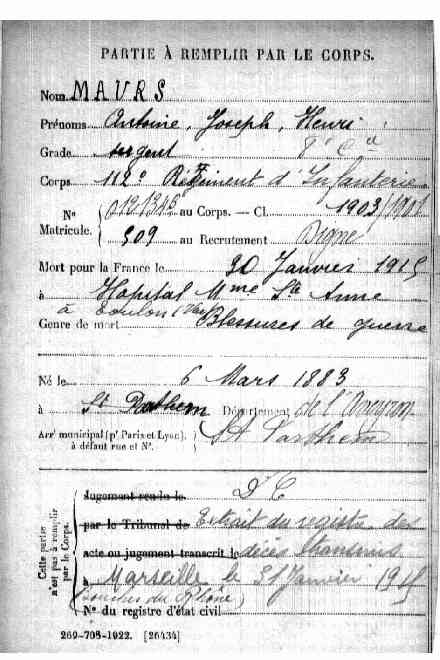 PARTIE À REMPLIR PAR LE CORPS.
Nom MAURS
Prénoms Antoine, Joseph, Henri
Grade sergent 7e Cie
Corps 112e Régiment d'Infanterie
N° Matricule. 012134 au Corps. — Cl. 1903/1901
509 au Recrutement Digne
Mort pour la France le 30 Janvier 1915
à Hopital Mme Ste Anne
à Toulon (Var)
Genre de mort Blessures de guerre
Né le 6 Mars 1883
à St Département de l'Aveyron
Arrt municipal (pr Paris et Lyon), à défaut rue et N°. St Parthem
Cette partie n'est pas à remplir par le Corps.
Jugement rendu le D C
par le Tribunal de Extrait du registre des
acte ou jugement transcrit le décès transmis
à Marseille le 31 Janvier 1915
(Bouches du Rhône)
N° du registre d'état civil
269-708-1922. [26434]